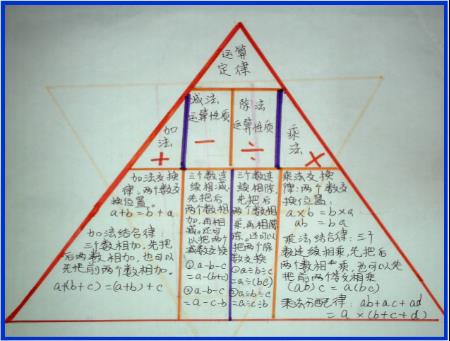 运算
定律
加
法
+
减法
运算性质
−
除法
运算性质
÷
乘
法
×
加法交换
律:两个数交
换位置。
a+b=b+a
加法结合律
三个数相加,先把
后两数相加,也可以
先把前两个数相加。
a+(b+c)=(a+b)+c
三个数连
续相减,
先把后
两个数
相加,再
相减,还可
以把两个
减数交换
①a-b-c
=a-(b+c)
②a-b-c
=a-c-b
三个数连
续相除,
先把后
两个数相
乘,再相
除,还可以
把两个除
数交换
①a÷b÷c
=a÷(bc)
②a÷b÷c
=a÷c÷b
乘法交换
律:两个数交
换位置。
a×b=b×a
ab=ba
乘法结合律:三个
数连续相乘,先把后
两个数相乘,也可以先
把前两个数相乘
(ab)c=a(bc)
乘法分配律:ab+ac+ad
=a×(b+c+d)